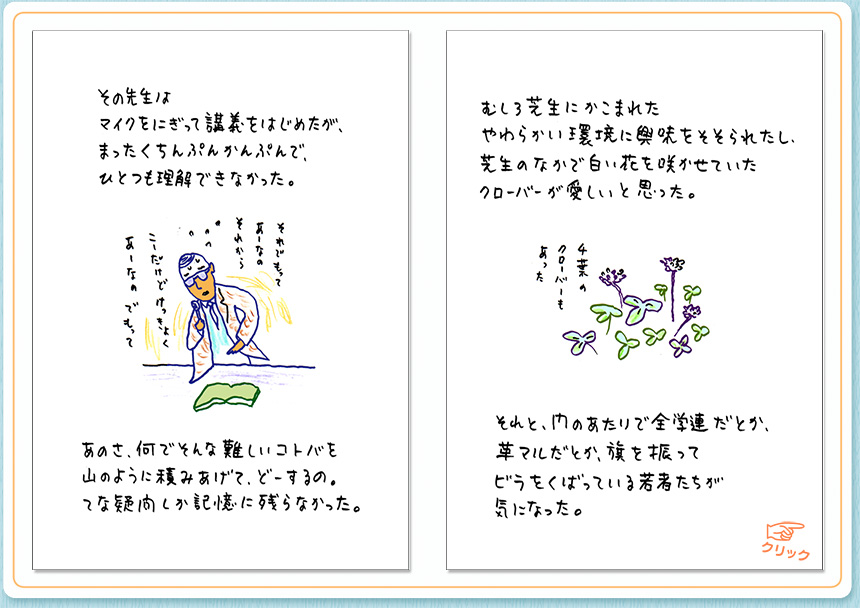 その先生は
マイクをにぎって講義をはじめたが、
まったくちんぷんかんぷんで、
ひとつも理解できなかった。
それでもって
あーなの
それから
こーだけどけっきょく
あーなのでもって
あのさ、何でそんな難しいコトバを
山のように積みあげて、どーするの。
てな疑問しか記憶に残らなかった。
むしろ芝生にかこまれた
やわらかい環境に興味をそそられたし、
芝生のなかで白い花を咲かせていた
クローバーが愛しいと思った。
4葉の
クローバーも
あった
それと、門のあたりで全学連だとか、
革マルだとか、旗を振って
ビラをくばっている若者たちが
気になった。
クリック